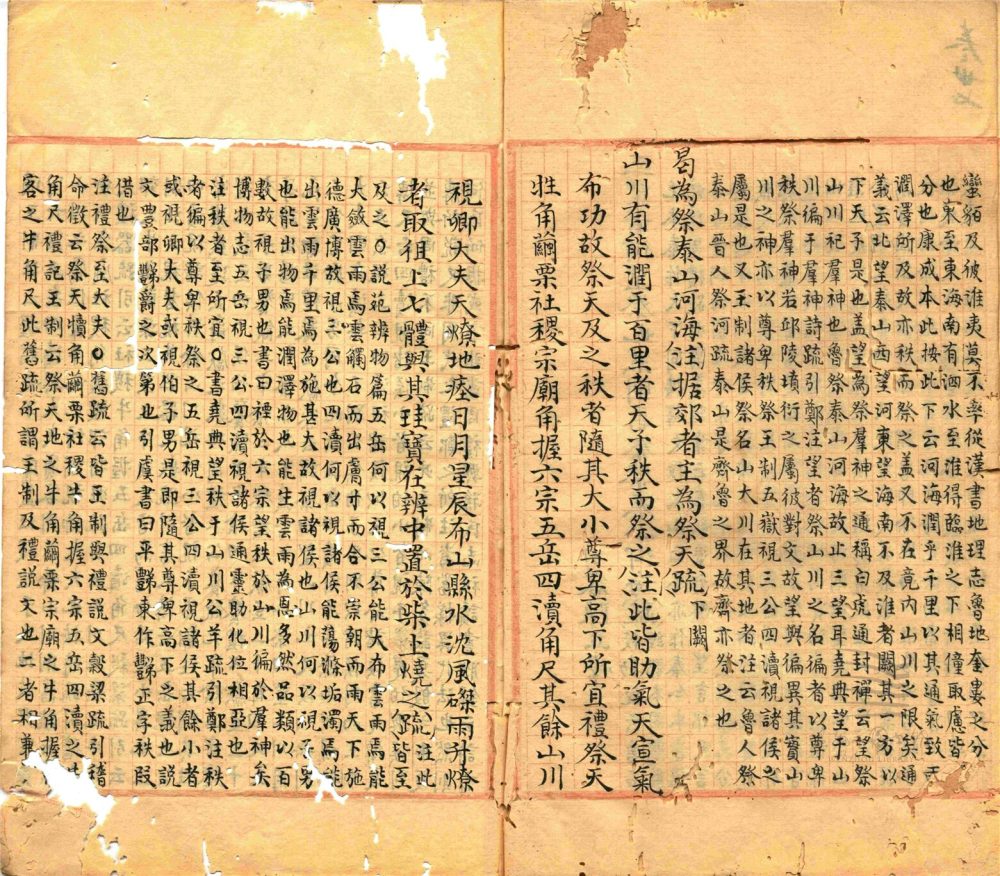 蠻貊及彼淮夷莫不率從漢書地理志魯地奎婁之分
也東至東海南有泗水至淮得臨淮之下相僮取慮皆
分也康成本此按此下云河海潤乎千里以其通氣致雨
潤澤所及故亦秩而祭之蓋又不在竟内山川之限矣通
義云北望泰山西望河東望海南不及淮者闕其一方以
下天子是也蓋望為祭羣神之通稱白虎通封禪云望祭
山川祀羣神也魯祭泰山河海故止三望耳堯典望于山
川徧于羣神詩疏引鄭注望者祭山川之名徧者以尊卑
秩祭羣神若邱陵墳衍之屬彼對文故望與徧異其實山
川之神亦以尊卑秩祭王制五嶽視三公四瀆視諸侯之
屬是也又王制諸侯祭名山大川在其地者注云魯人祭
泰山晉人祭河疏泰山是齊魯之界故齊亦祭之也
曷為祭泰山河海(注)據郊者主為祭天(疏)下闕
山川有能潤于百里者天子秩而祭之(注)此皆助氣天宣氣
布功故祭天及之秩者隨其大小尊卑高下所宜禮祭天
牲角繭栗社稷宗廟角握六宗五岳四瀆角尺其餘山川
視卿大夫天燎地瘞日月星辰布山縣水沈風磔雨升燎
者取俎上七體與其珪寶在辨中置於柴上燒之(疏)注此皆至
及之〇說苑辨物篇五岳何以視三公能大布雲雨焉能
大斂雲雨焉雲觸石而出膚寸而合不崇朝而雨天下施
德廣博故視三公也四瀆何以視諸侯能蕩滌垢濁焉能
出雲雨千里焉為施甚大故視諸侯也山川何以視子男
也能出物焉能潤澤物也能生雲雨為恩多然品類以百
數故視子男也書曰禋於六宗望秩於山川徧於羣神矣
博物志五岳視三公四瀆視諸侯通靈助化位相亞也
注秩者至所宜〇書堯典望秩于山川公羊疏引鄭注秩
者徧以尊卑秩祭之五岳視三公四瀆視諸侯其餘小者
或視卿大夫或視伯子男是即隨其尊卑高下之義也說
文豊部豑爵之次第也引虞書曰平豑東作豑正字秩叚
借也
注禮祭至大夫〇舊疏云皆王制與禮說文穀梁疏引稽
命徵云祭天犢角繭栗社稷牛角握六宗五岳四瀆之牛
角尺禮記王制云祭天地之牛角繭栗宗廟之牛角握賓
客之牛角尺此舊疏所謂王制及禮說文也二者相兼